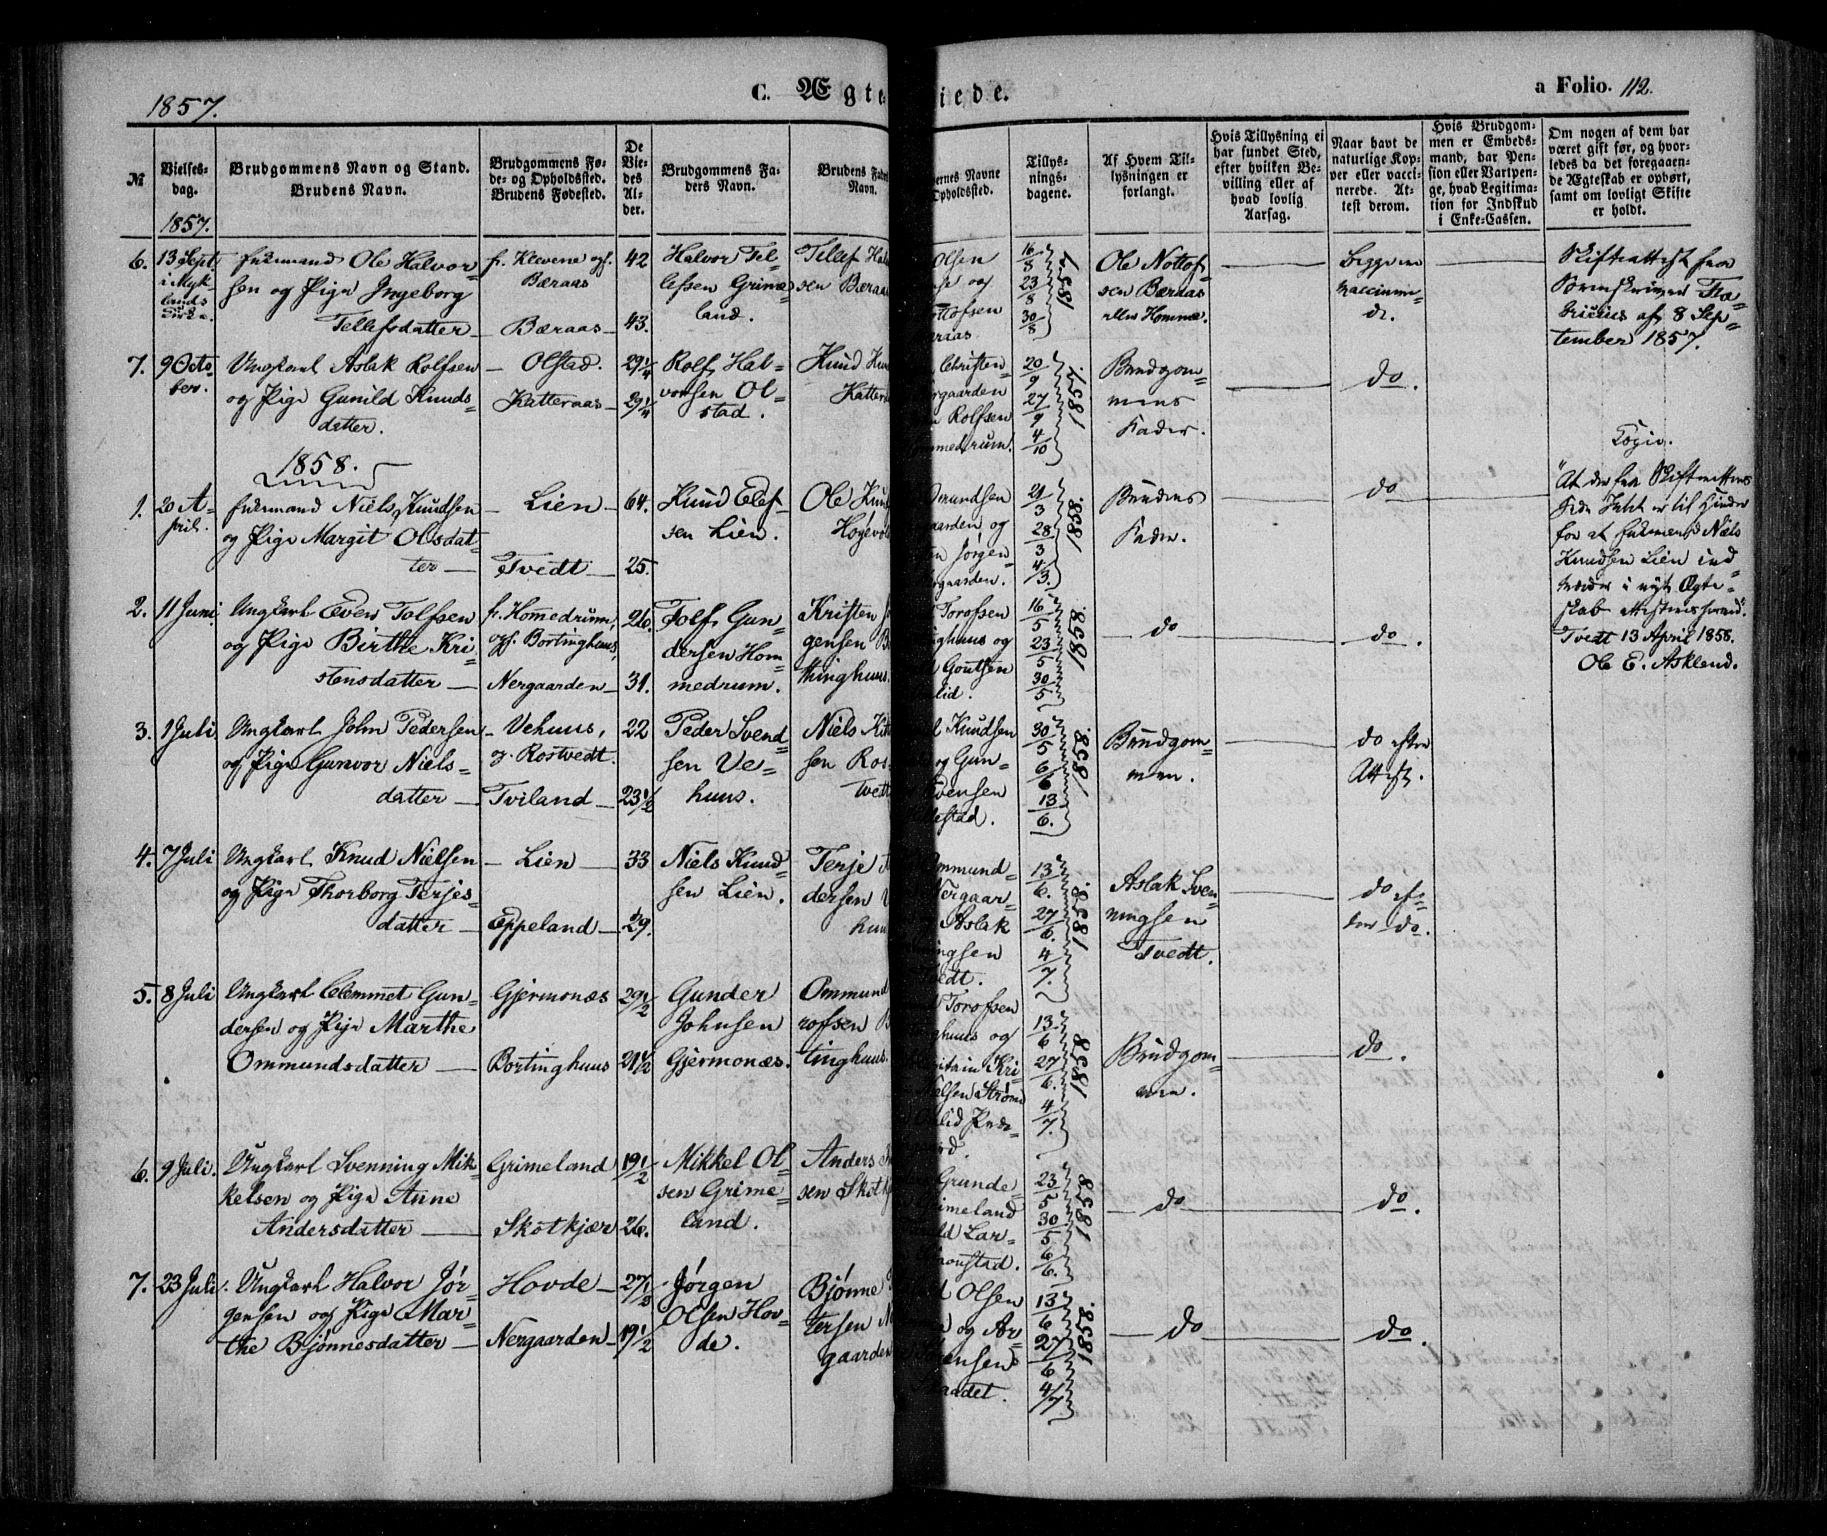 1857.
C. Ægte
iede.
a Folio. 112.
№
Vielses-
dag.
Brudgommens Navn og Stand.
Brudens Navn.
Brudgommens Fø-
de- og Opholdssted.
Brudens Fødested.
De
Vie-
des
Al-
der.
Brudgommens Fa-
ders Navn.
Brudens
Navn.
ernes Navne
Opholdssted.
Tillys-
nings-
dagene.
Af Hvem Til-
lysningen er
forlangt.
Hvis Tillysning ei
har fundet Sted,
efter hvilken Be-
villing eller af
hvad lovlig
Aarsag.
Naar havt de
naturlige Kop-
per eller vacci-
nerede. At-
test derom.
Hvis Brudgom-
men er Embeds-
mand, har Pen-
sion eller Vartpen-
ge, hvad Legitima-
tion for Indskud
i Enke-Cassen.
Om nogen af dem har
været gift før, og hvor-
ledes da det foregaaen-
de Ægteskab er ophørt,
samt om lovligt Skifte
er holdt.
1857.
6. 13 Sept.
i Myk-
lands
Kirke.
Enkemand Ole Halvor-
sen og Pige Ingeborg
Tellefsdatter
f. Klevene og f.
Bæraas
Bæraas
42
43.
Halvor Tel-
lefsen Grime-
land.
Tellef
sen Bæraas
Olsen
og
ottofsen
eraas
16/8
23/8
30/8
1857
Ole Nottof-
sen Bæraas
eller Homme.
Begge
vaccinere-
de.
Skifteattest fra
Sorenskriver
af 8 Sep-
tember 1857.
7. 9 Octo-
ber.
Ungkarl Aslak Rolfsen
og Pige Gunild Knuds-
datter.
Olstad.
Katteraas
29 1/4
29 1/4
Rolf Hal-
vorsen Ol-
stad.
Knud
Katter
Christen
rgaarden
Rolfsen
ommedrum.
20/9
27/9
4/10
1857.
Brudgom-
mens
Fader.
do.
1858.
1. 20 A-
pril.
Enkemand Niels Knudsen
og Pige Margit Olsdat-
ter
Lien
Tvedt
64.
25.
Knud Elef-
sen Lien.
Ole
Omundsen
aarden og
Jørgen
rgaarden.
21/3
28/3
4/3.
1858.
Brudens
Fader.
do
Copie.
"At der fra Skifterettens
Side Intet er til Hinder
for at Enkemand Niels
Knudsen Lien ind-
træder i nyt Ægte-
skab attesteres herved."
Tvedt 13 April 1858.
Ole E. Askland.
2. 11 Juni
Ungkarl Even Tolfsen
og Pige Birthe Kri-
stensdatter
f. Hommedrum,
og f. Bortinghuus,
Nergaarden
26.
31.
Tolf Gun-
dersen Hom-
medrum.
Kristen
gensen
tinghuus.
Torofsen
ighuus og
Goutsen
lid.
16/5
23/5
30/5
1858.
do
do.
3. 1 Juli
Ungkarl John Pedersen
og Pige Gunvor Niels-
datter
Vehuus,
og Rostvedt.
Tviland
22
23 1/2
Peder Svend-
sen Ve-
huus.
Niels
sen Ros-
tvedt
Knudsen
og Gun-
Evensen
stad.
30/5
6/6
13/6.
1858.
Brudgom-
men.
do efter
Attest.
4. 7 Juli
Ungkarl Knud Nielsen
og Pige Thorborg Terjes-
datter
Lien
Eppeland
33
29.
Niels Knud-
sen Lien.
Terje
dersen
huus
Ommund-
Nergaar-
Aslak
ingsen
vedt.
13/6.
27/6.
4/7.
1858.
Aslak Sven-
ningsen
Tvedt.
do ef-
ter do.
5. 8 Juli
Ungkarl Clemmet Gun-
dersen og Pige Marthe
Ommundsdatter
Gjermonæs
Bortinghuus
29 1/2
21 1/2
Gunder
Johnsen
Gjermonæs.
Ommund
rofsen
tinghuus.
Torofsen
ghuus og
Kri-
Strøm
13/6
27/6.
4/7.
1858.
Brudgom-
men.
do.
6. 9 Juli.
Ungkarl Svenning Mik-
kelsen og Pige Anne
Andersdatter
Grimeland
Skotkjær
19 1/2
26.
Mikkel Ol-
sen Grime-
land.
Anders
sen
Grunde-
Grimeland
Lar-
stad.
23/5
30/5
6/6.
1858.
do
do.
7. 23 Juli.
Ungkarl Halvor Jør-
gensen og Pige Mar-
the Bjønnesdatter
Hovde
Nergaarden
27 1/2
19 1/2
Jørgen
Olsen Hov-
de.
Bjønne
tersen
gaarden
Olsen
og Ar-
ensen
aadet.
13/6
27/6
4/7
1858.
do
do.